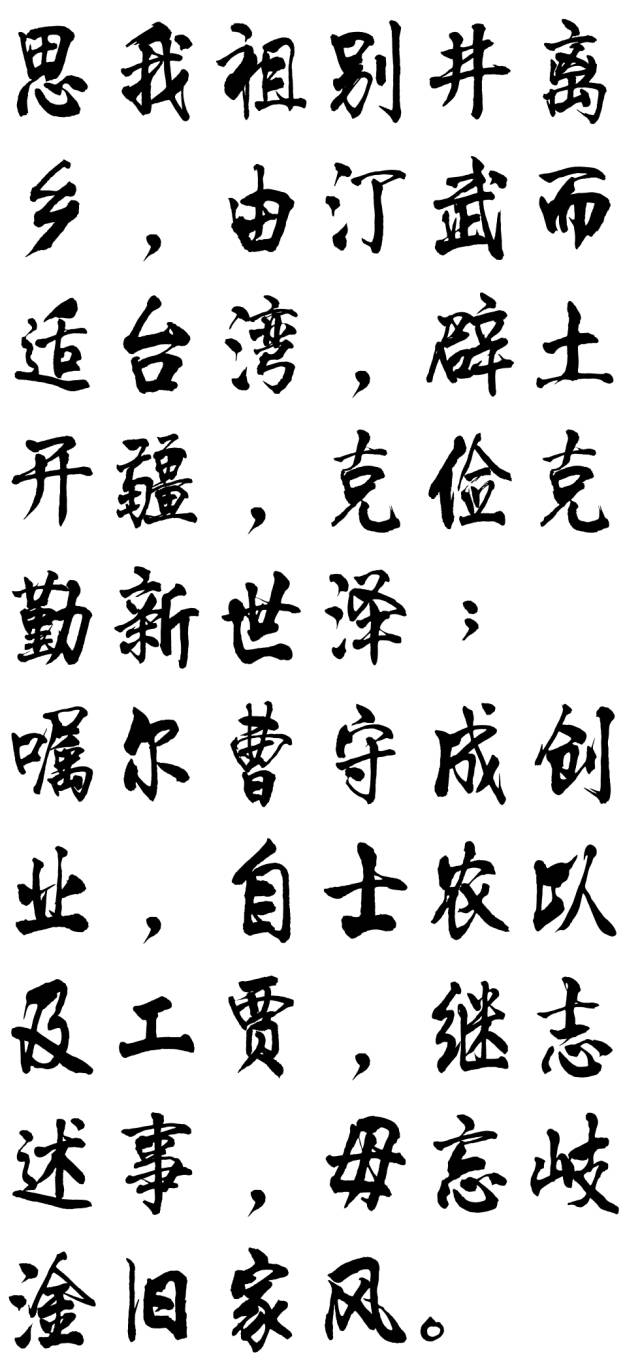 思我祖别井离
乡，由汀武而
适台湾，辟土
开疆，克俭克
勤新世泽；
嘱尔曹守成创
业，自士农以
及工贾，继志
述事，毋忘岐
淦旧家风。